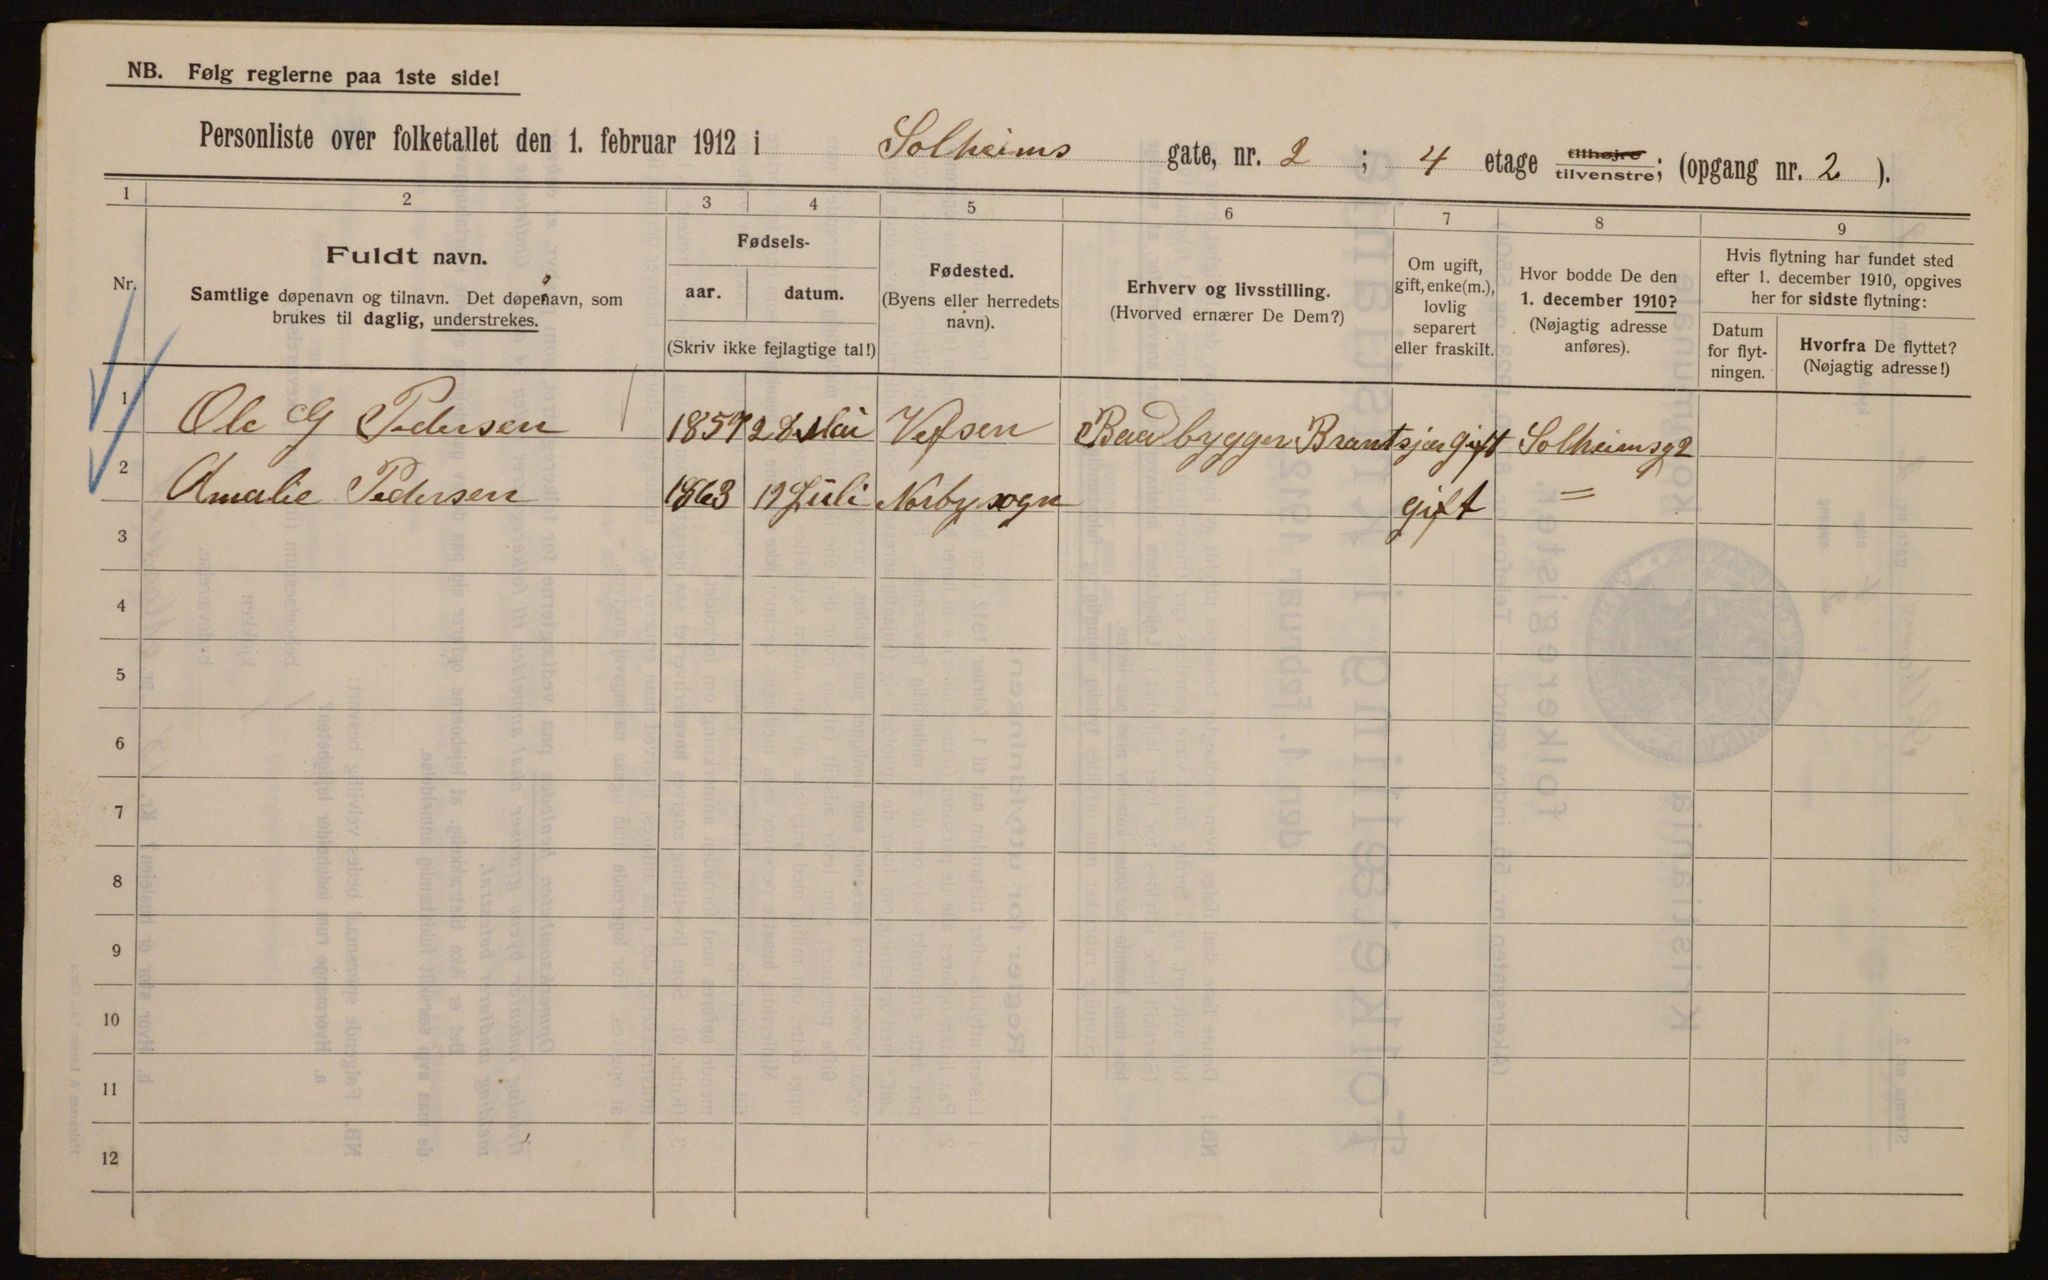 NB. Følg reglerne paa 1ste side!
Personliste over folketallet den 1. februar 1912 i Solheims gate, nr. 2 ; 4 etage tilhøjre tilvenstre; (opgang nr. 2 ).
1 2 3 4 5 6 7 8 9
Nr.
Fuldt navn.
Samtlige døpenavn og tilnavn. Det døpenavn, som
brukes til daglig, understrekes.
Fødsels-
aar. datum.
(Skriv ikke fejlagtige tal!)
Fødested.
(Byens eller herredets
navn).
Erhverv og livsstilling.
(Hvorved ernærer De Dem?)
Om ugift,
gift, enke(m.),
lovlig
separert
eller fraskilt.
Hvor bodde De den
1. december 1910?
(Nøjagtig adresse
anføres).
Hvis flytning har fundet sted
efter 1. december 1910, opgives
her for sidste flytning:
Datum
for flyt-
ningen.
Hvorfra De flyttet?
(Nøjagtig adresse!)
1 Ole G Pedersen 1857 28 Mai Vefsen Baadbygger gift Solheimsg 2
2 Amalie Pedersen 1863 19 Juli Norby sogn gift =
3
4
5
6
7
8
9
10
11
12